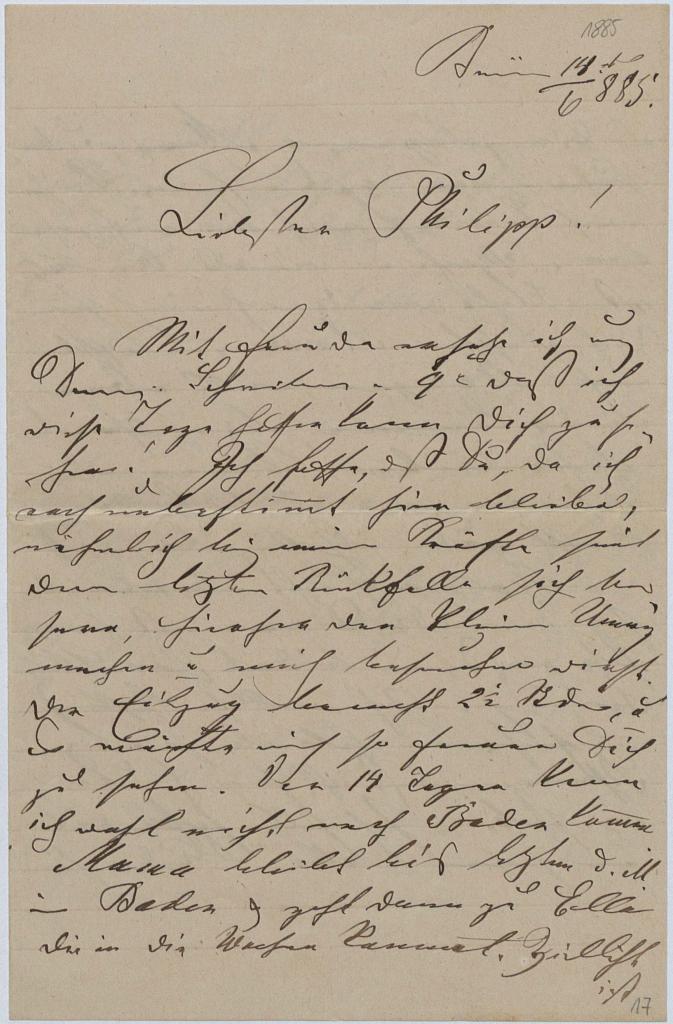 1885
Brünn 14/6 885.
Liebster Philipp!
Mit Freude ersehe ich aus
Deinem Schreiben daß ich
diese Tage hoffen kann Dich zu se-
hen! Ich hoffe, daß Du, da ich
noch unbestimmt hier bleibe,
nähmlich bis meine Kräfte seit
dem letzten Rückfalle sich
hieher den kleinen Umweg
machen u mich besuchen wirst.
Der Eilzug braucht 2½ Stde, u
es würde mich so freuen Dich
zu sehen. Vor 14 Tagen kann
ich wohl nicht nach Baden komme
Mama bleibt bis letzten d. M
in Baden & geht dann zu Ella
die in die Wochen kommt. Vielleicht
ist
17